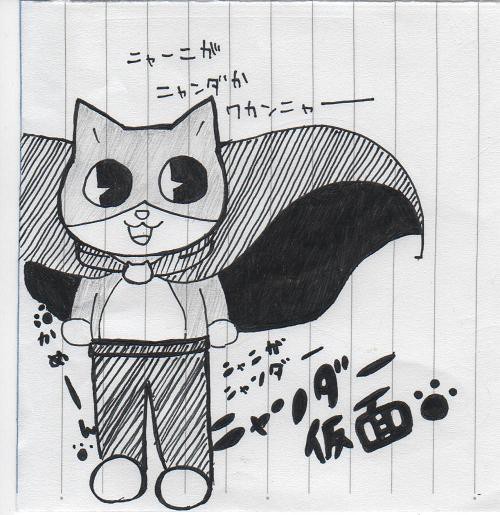 ニャーニが
ニャンダか
ワカンニャー
かめーん
ニャニが
ニャンダー
ニャンダー
仮面